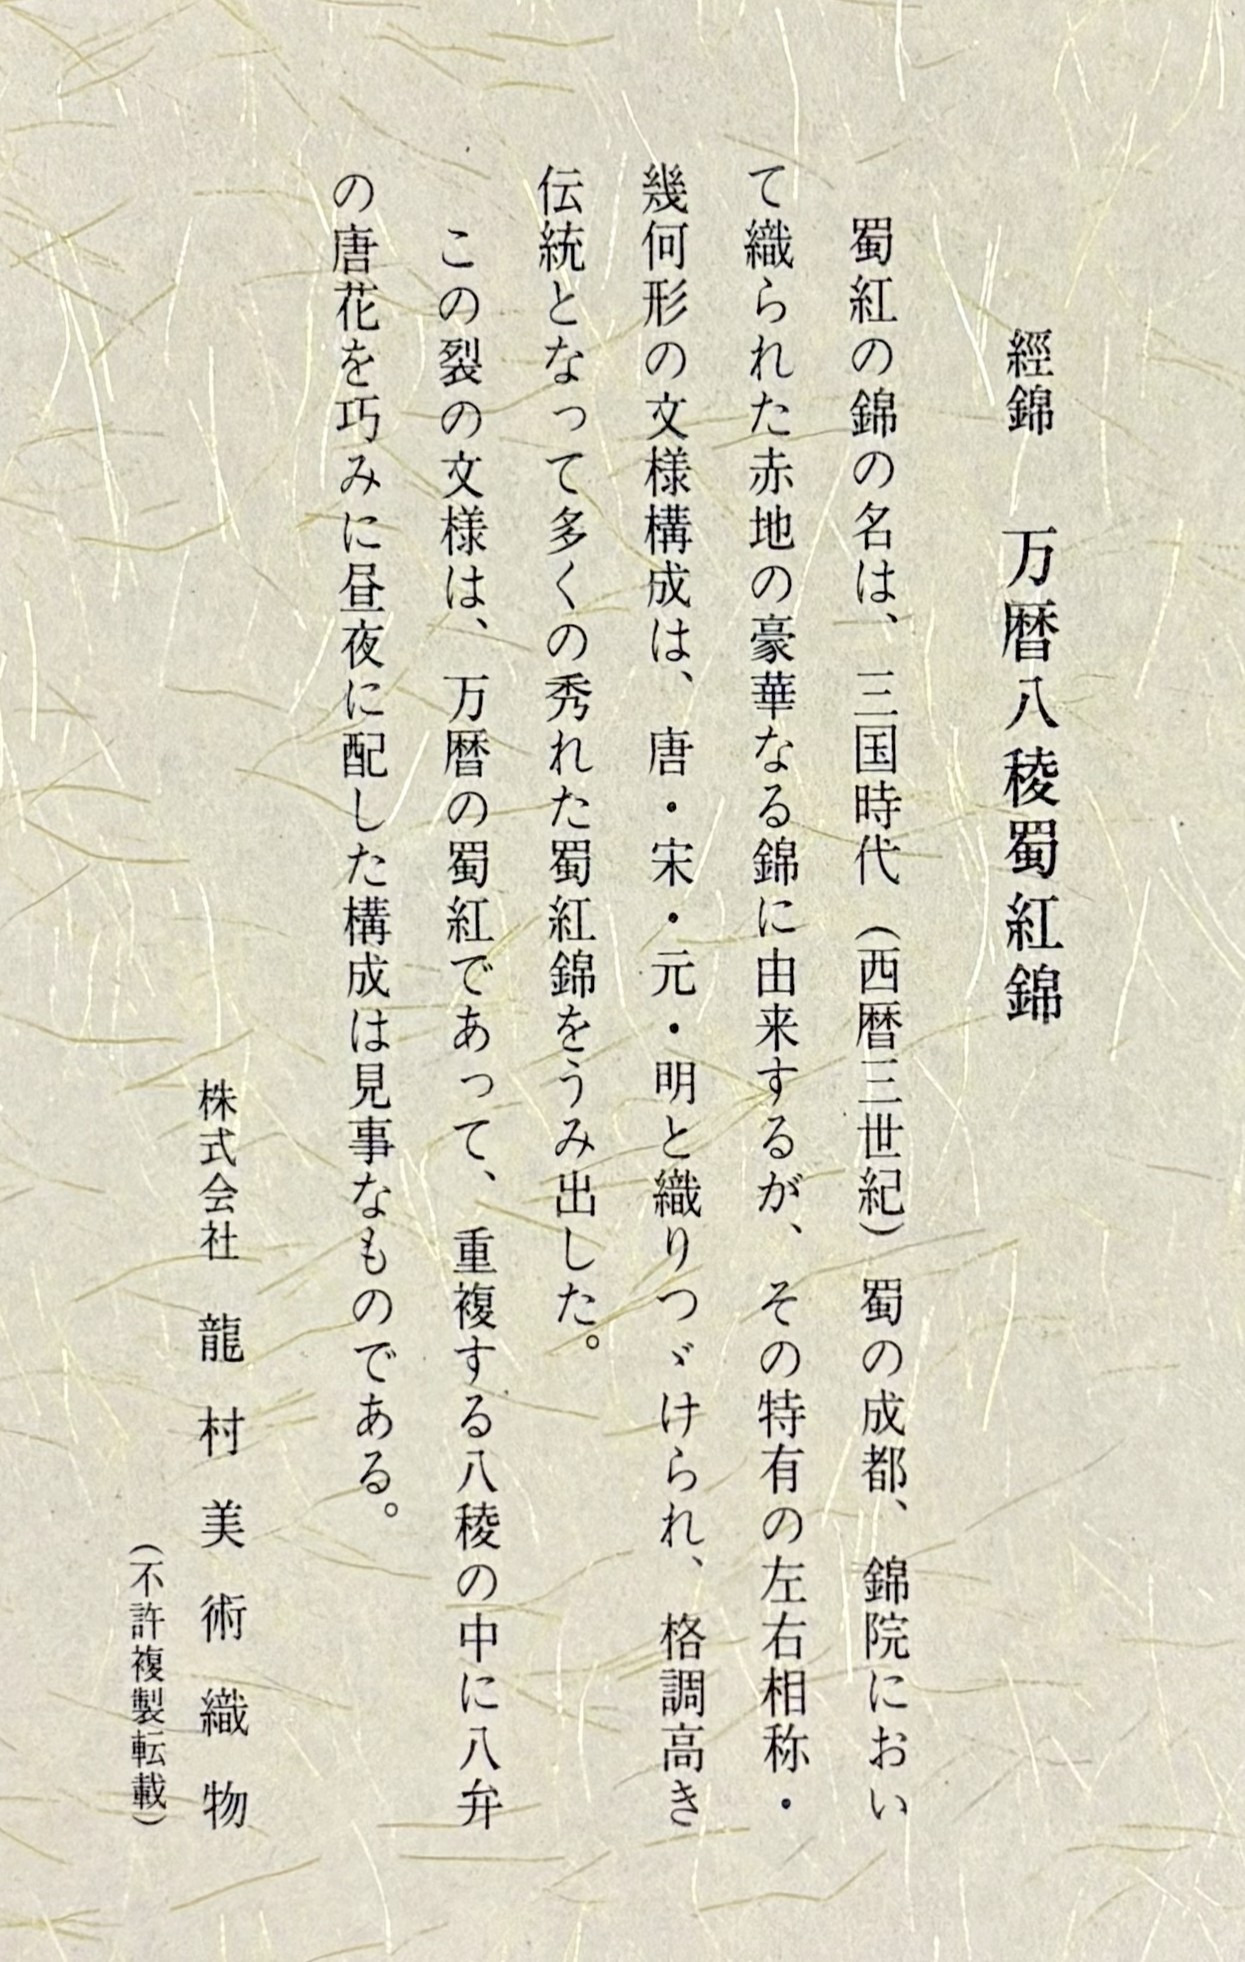 經錦　万暦八稜蜀紅錦
蜀紅の錦の名は、三国時代（西暦三世紀）蜀の成都、錦院におい
て織られた赤地の豪華なる錦に由来するが、その特有の左右相称・
幾何形の文様構成は、唐・宋・元・明と織りつゞけられ、格調高き
伝統となって多くの秀れた蜀紅錦をうみ出した。
この裂の文様は、万暦の蜀紅であって、重複する八稜の中に八弁
の唐花を巧みに昼夜に配した構成は見事なものである。
株式会社　龍村美術織物
（不許複製転載）